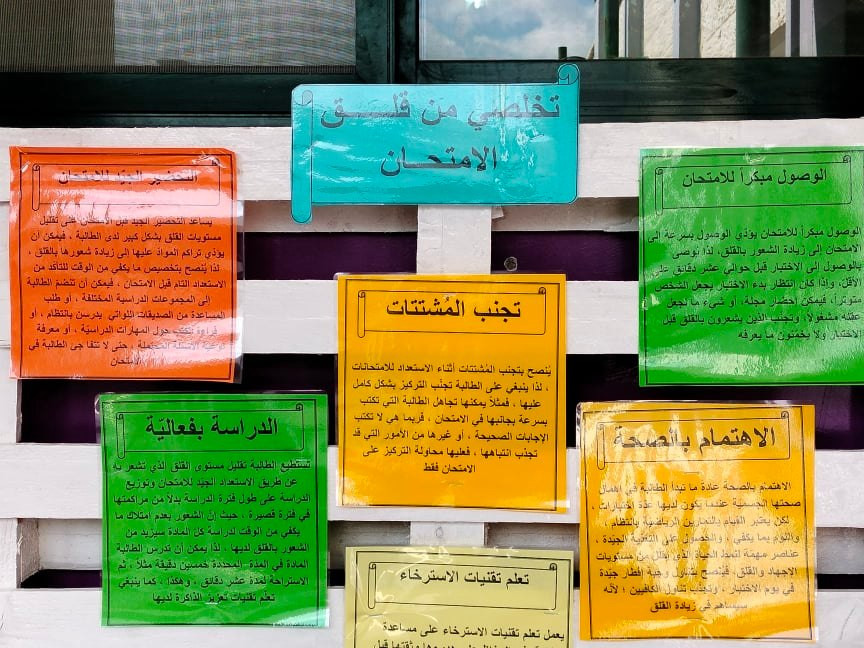 تخلصي من قلـــــق
الامتحـــان
التحضير الجيّد للامتحان
يساعد التحضير الجيد قبل الامتحان على تقليل
مستويات القلق بشكل كبير لدى الطالبة ، فيمكن أن
يؤدي تراكم المواد عليها إلى زيادة شعورها بالقلق ،
لذا يُنصح بتخصيص ما يكفي من الوقت للتأكد من
الاستعداد التام قبل الامتحان ، فيمكن أن تنضم الطالبة
إلى المجموعات الدراسية المختلفة ، أو طلب
المساعدة من الصديقات اللواتي يدرسن بانتظام ، أو
قراءة كتب حول المهارات الدراسيّة ، أو معرفة
الأسئلة المحتملة ، حتى لا تتفاجئ الطالبة في
الامتحان
الوصول مبكراً للامتحان
الوصول مبكراً للامتحان يؤدي الوصول بسرعة إلى
الامتحان إلى زيادة الشعور بالقلق، لذا نوصي
بالوصول إلى الاختبار قبل حوالي عشر دقائق على
الأقل، وإذا كان انتظار بدء الاختبار يجعل الشخص
متوتراً، فيمكن إحضار مجلة، أو شيء ما لجعل
عقله مشغولاً، وتجنب الذين يشعرون بالقلق قبل
الاختبار ولا يخمنون ما يعرفه
تجنب المُشتتات
يُنصح بتجنب المُشتتات أثناء الاستعداد للامتحانات
، لذا ينبغي على الطالبة تجنب التركيز بشكل كامل
عليها ، فمثلاً يمكنها تجاهل الطالبة التي تكتب
بسرعة بجانبها في الامتحان ، فربما هي لا تكتب
الإجابات الصحيحة ، أو غيرها من الأمور التي قد
تجذب انتباهها ، فعليها محاولة التركيز على
الامتحان فقط
الدراسة بفعاليّة
تستطيع الطالبة تقليل مستوى القلق الذي تشعر به
عن طريق الاستعداد الجيد للامتحان وتوزيع
الدراسة على طول فترة الدراسة بدلاً من مراكمتها
في فترة قصيرة ، حيث إن الشعور بعدم امتلاك ما
يكفي من الوقت لدراسة كل المادة سيزيد من
الشعور بالقلق لديها . لذا يمكن أن تدرس الطالبة
المادة في المدة المحددة خمسين دقيقة مثلاً ، ثم
الاستراحة لمدة عشر دقائق ، وهكذا ، كما ينبغي
تعلم تقنيات تعزيز الذاكرة لديها
الاهتمام بالصحة
الاهتمام بالصحة عادة ما تبدأ الطالبة في إهمال
صحتها الجسمية عندما يكون لديها عدة اختبارات ،
لكن يعتبر القيام بالتمارين الرياضية بانتظام ،
والنوم بما يكفي ، والحصول على التغذية الجيدة ،
عناصر مهمة لنمط الحياة الذي يقلل من مستويات
الاجهاد والقلق، فينصح بتناول وجبة إفطار جيدة
في يوم الاختبار ، وتجنب تناول الكافيين ؛ لأنه
سيساهم في زيادة القلق
تعلم تقنيات الاسترخاء
يعمل تعلم تقنيات الاسترخاء على مساعدة